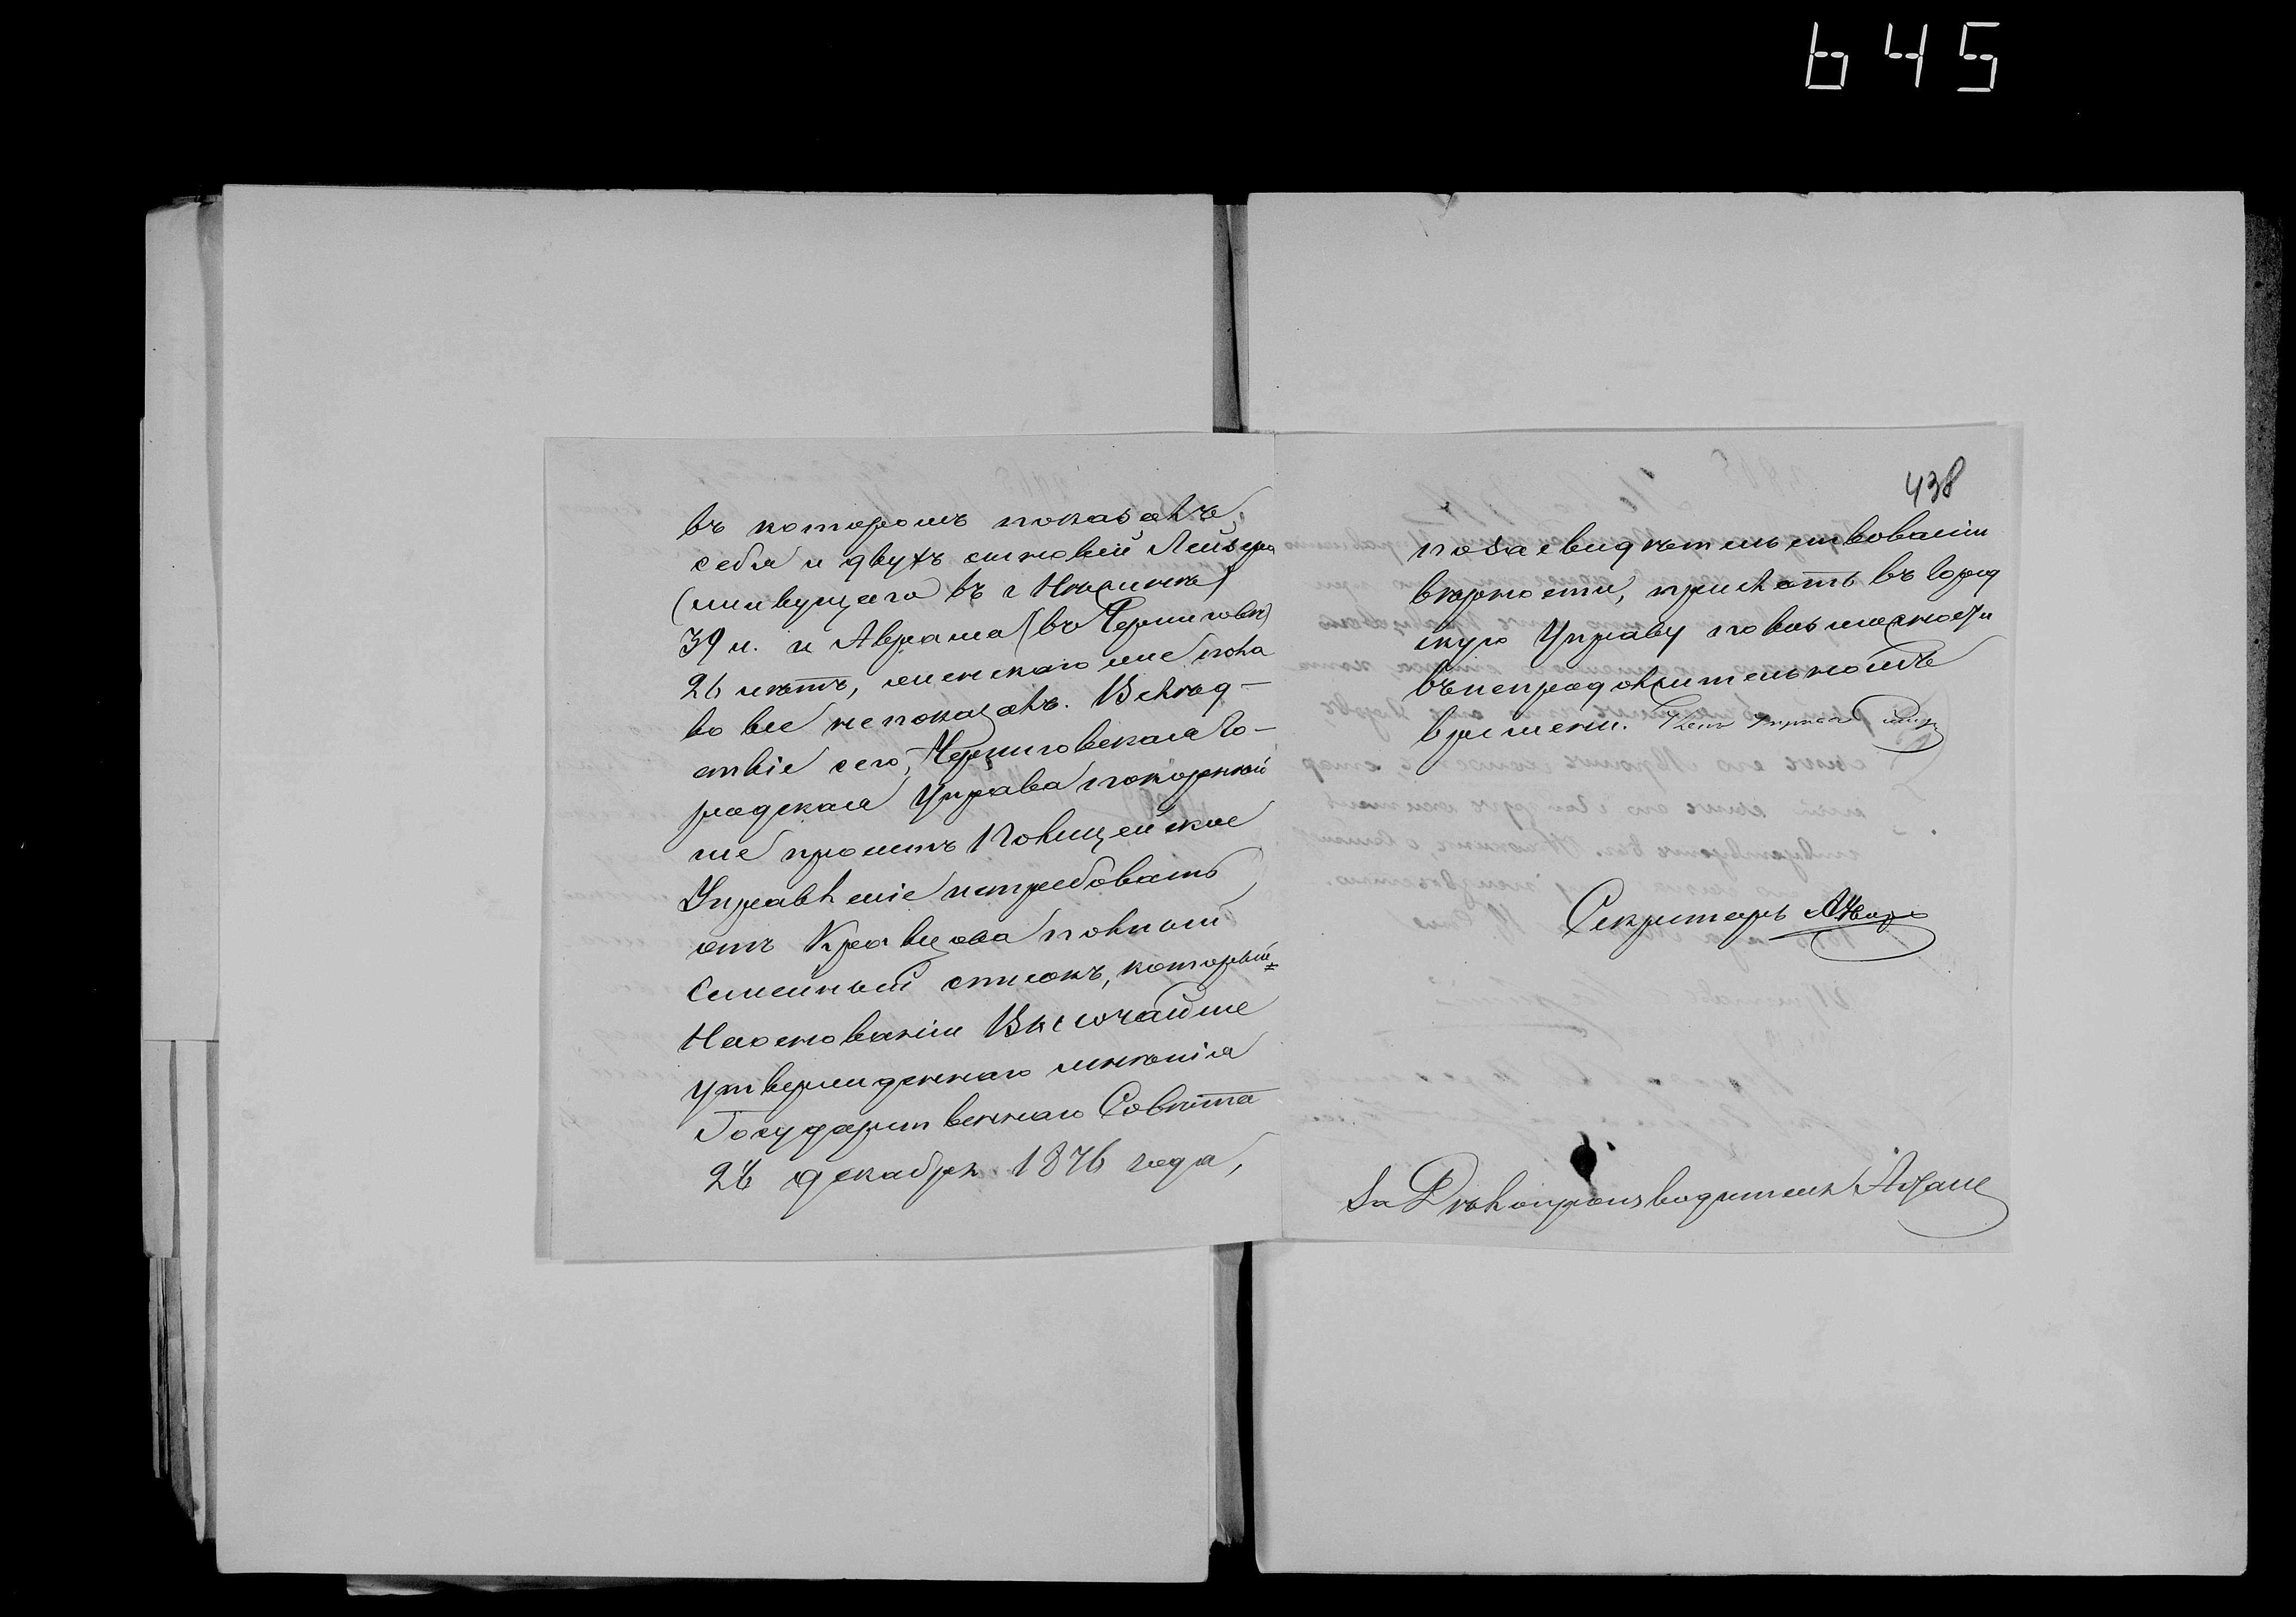 645
въ которомъ показалъ
себя и двухъ сыновей Лейзера
(живущаго въ г Нѣжинѣ)
39 л. и Аврама (въ Черниговѣ)
26 лѣтъ, женскаго же пола
вовсе не показалъ. Вслѣд-
ствіе сего, Черниговская Го-
родская Управа покорнѣй
ше проситъ Полицейское
Управленіе истребовать
отъ Кравцова полный
семейный списокъ, который
На основаніи Высочайше
утвержденнаго мнѣнія
Государственнаго Совѣта
28 декабря 1876 года,
438
по засвидѣтельствованіи
вѣрности, прислать въ Город
скую Управу по возможности
въ непродолжительномъ
времени. Членъ Управы
Секретарь
За Дѣлопроизводителя